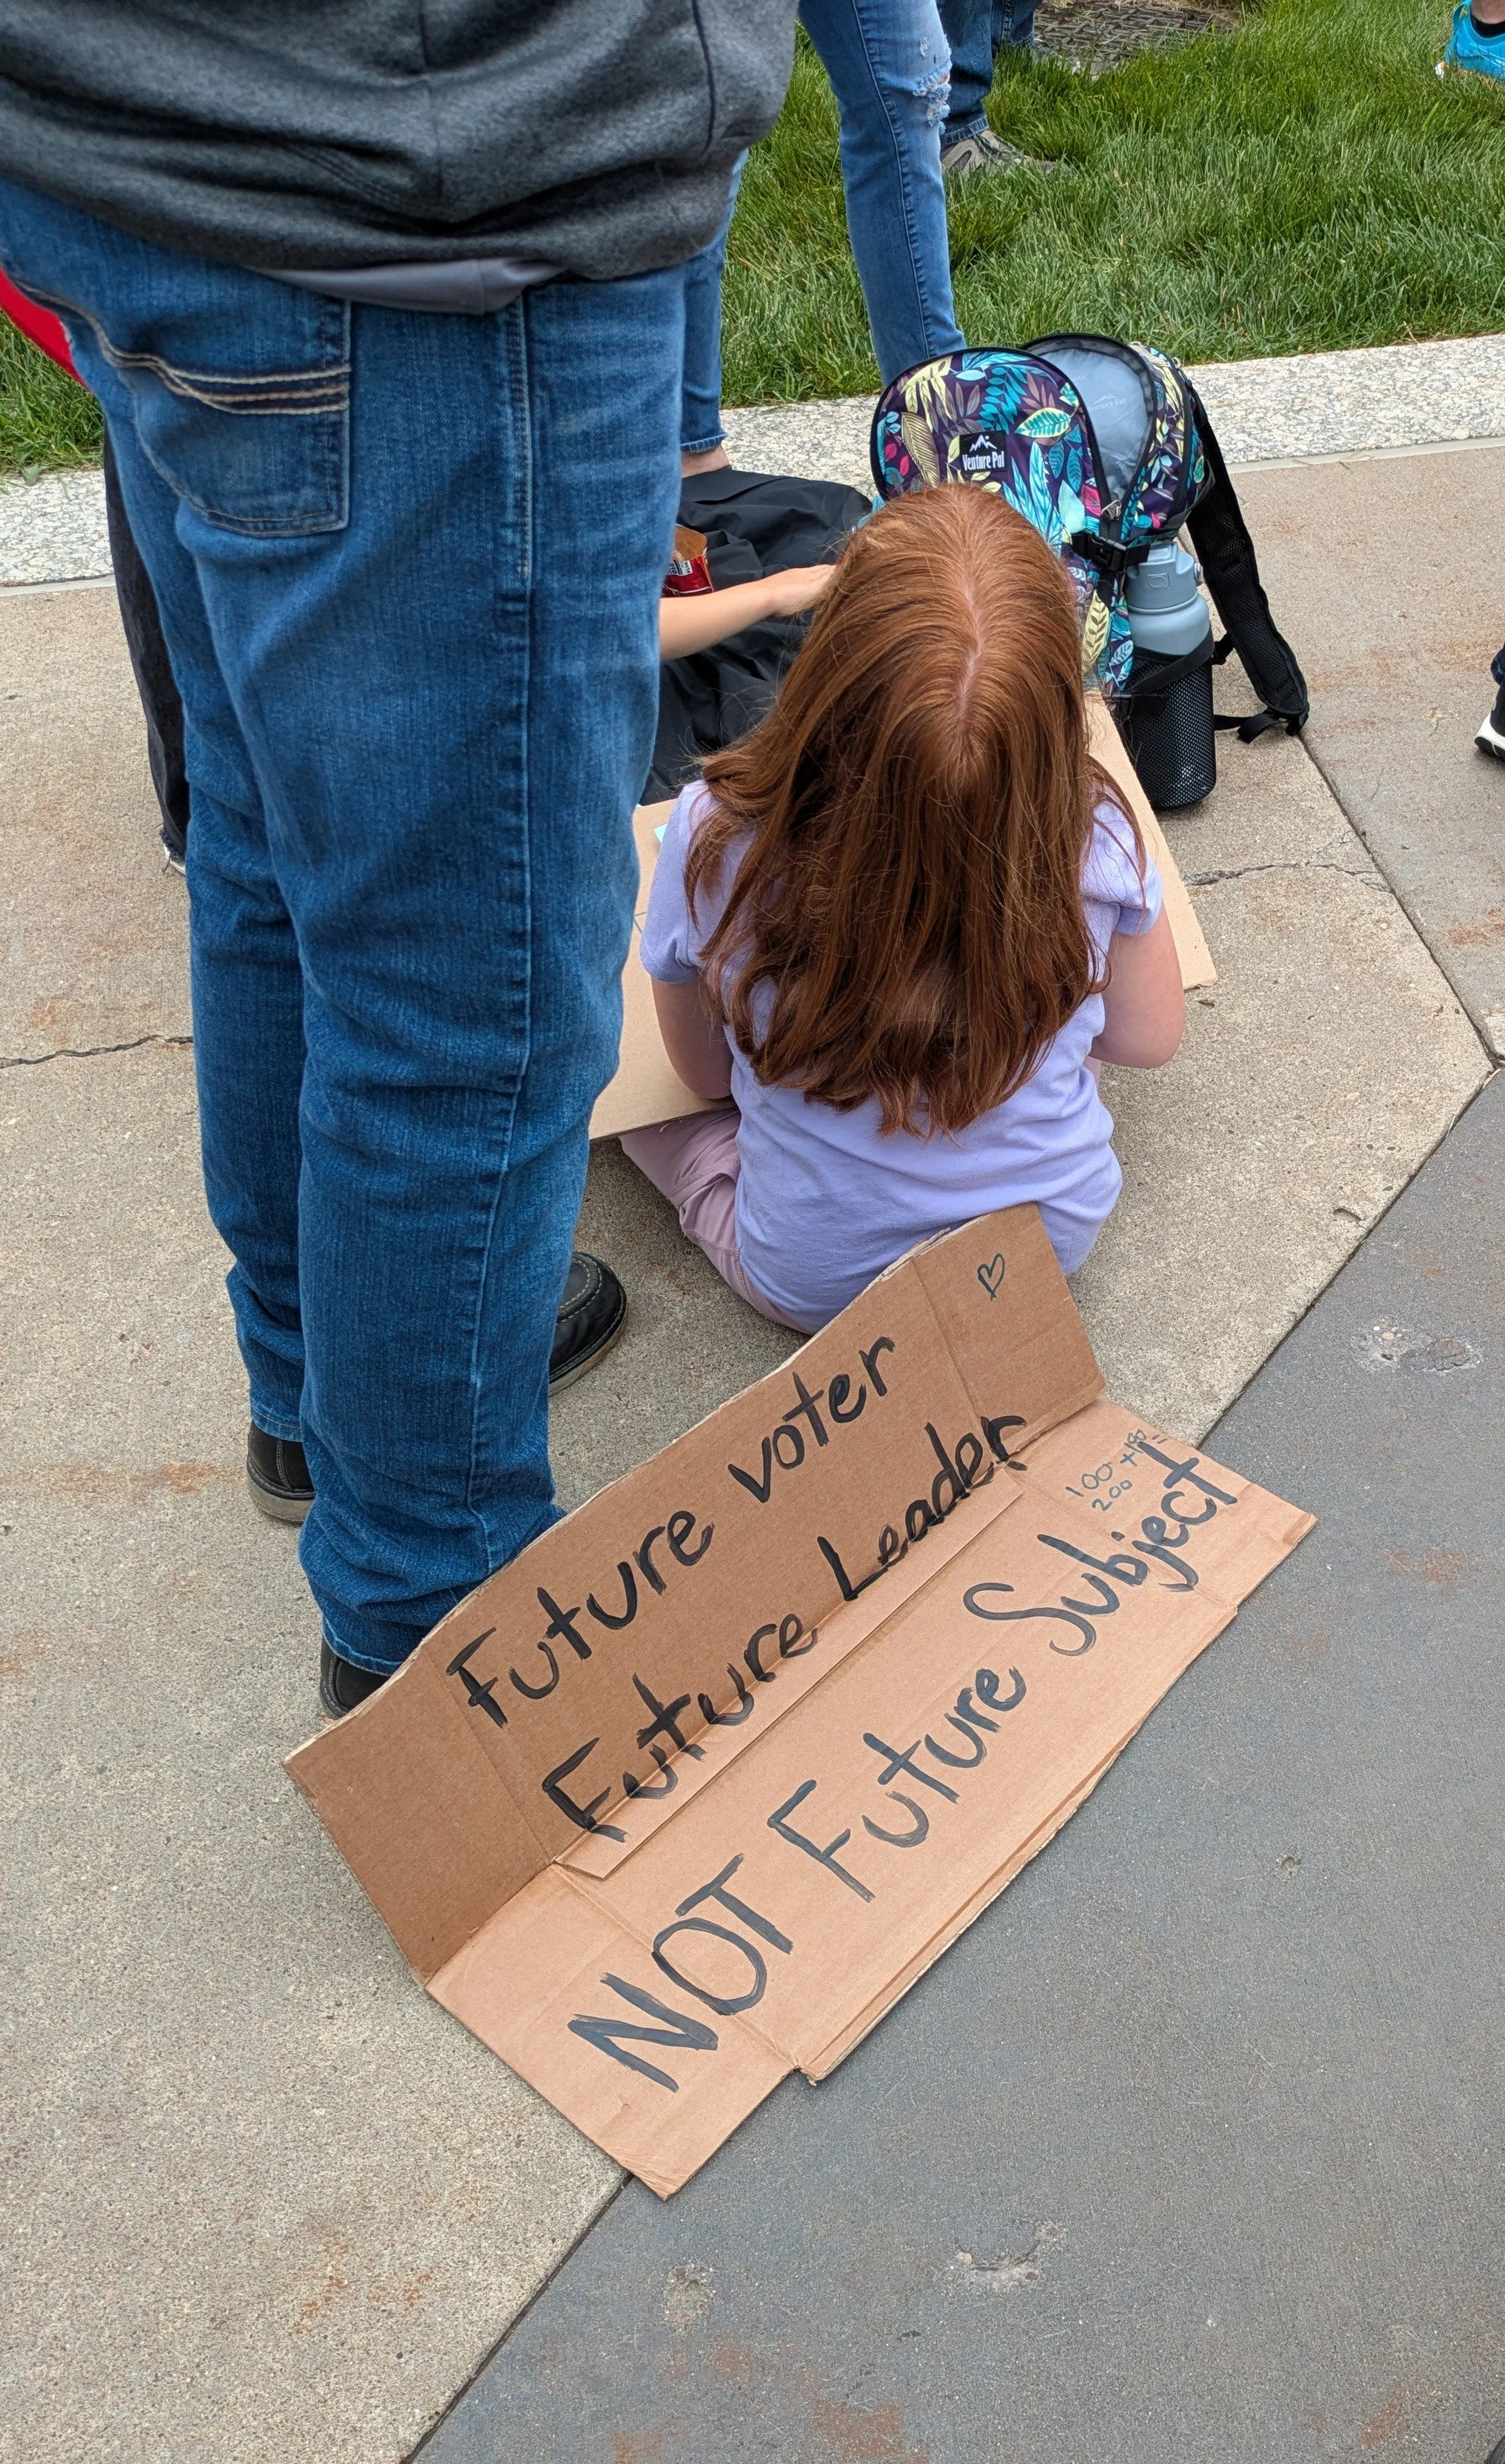 Venture Pal
Future voter
Future Leader
100 + 100 =
200
NOT Future Subject